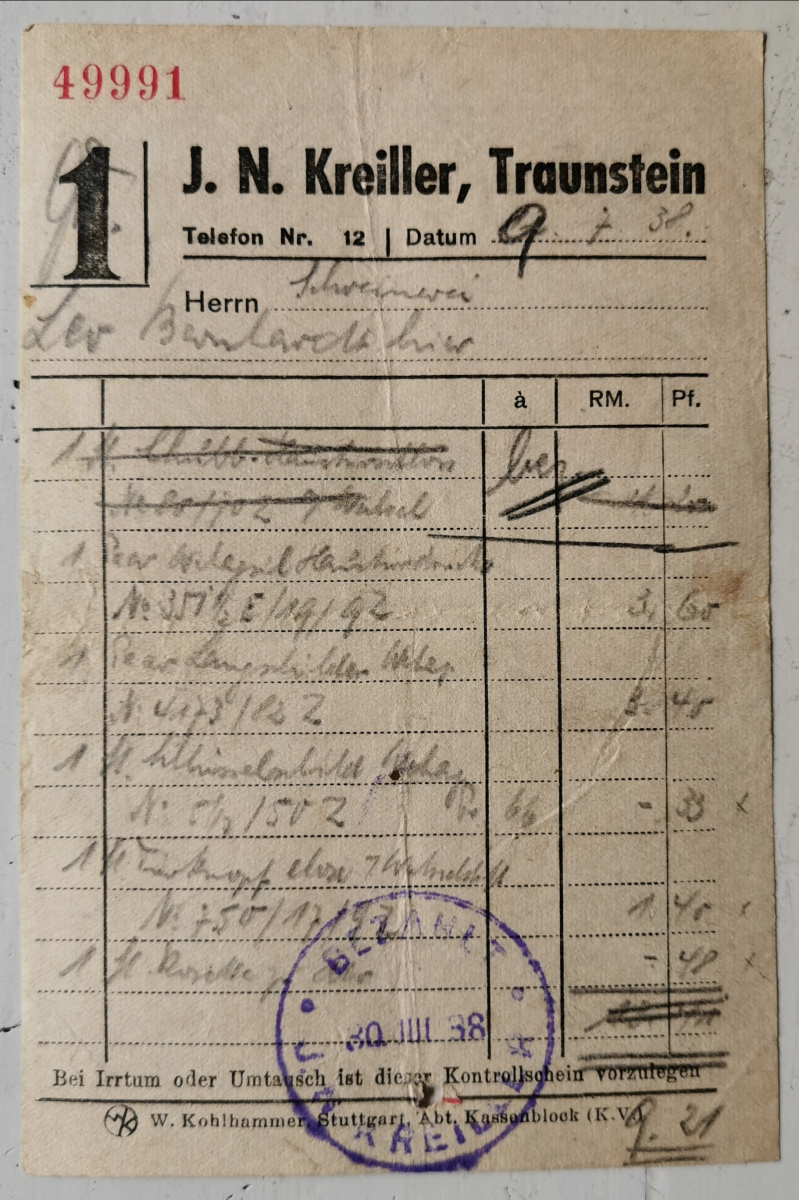 49991
1 J. N. Kreiller, Traunstein
Telefon Nr. 12 | Datum 9. 7. 38.
Herrn Schreinerei
Leo Bernhardt hier
à RM. Pf.
1 St.
ber
1 Paar Wehag
No 351½ E/19/9Z 3. 60
1 Paar Langschilder Wehag
No 4173/82 Z 3. 40
1 St. Schlüsselschild Wehag
No /50 Z 66 -. 33 x
1 St Türknopf
No 750/17/9Z 1. 40 x
1 St. Rosette -. 48 x
BEZAHLT
30 JUL 38
J. N. KREILLER
Bei Irrtum oder Umtausch ist dieser Kontrollschein vorzulegen
W. Kohlhammer, Stuttgart, Abt. Kassenblock (K.V.)
9. 21